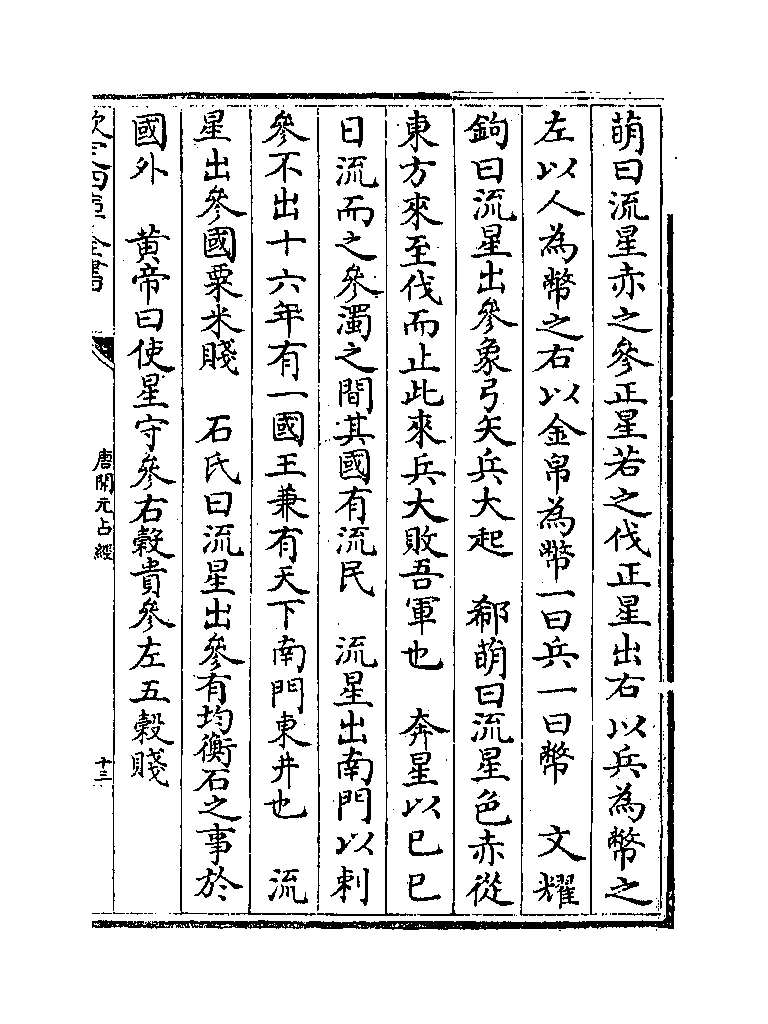 萌曰流星赤之參正星若之伐正星出右以兵為幣之
左以人為幣之右以金帛為幣一曰兵一曰幣　文耀
鉤曰流星出參象弓矢兵大起　郗萌曰流星色赤從
東方來至伐而止此來兵大敗吾軍也　奔星以已巳
日流而之參濁之間其國有流民　流星出南門以刺
參不出十六年有一國王兼有天下南門東井也　流
星出參國粟米賤　石氏曰流星出參有均衡石之事於
國外　黃帝曰使星守參右穀貴參左五穀賤
唐開元占經
十三